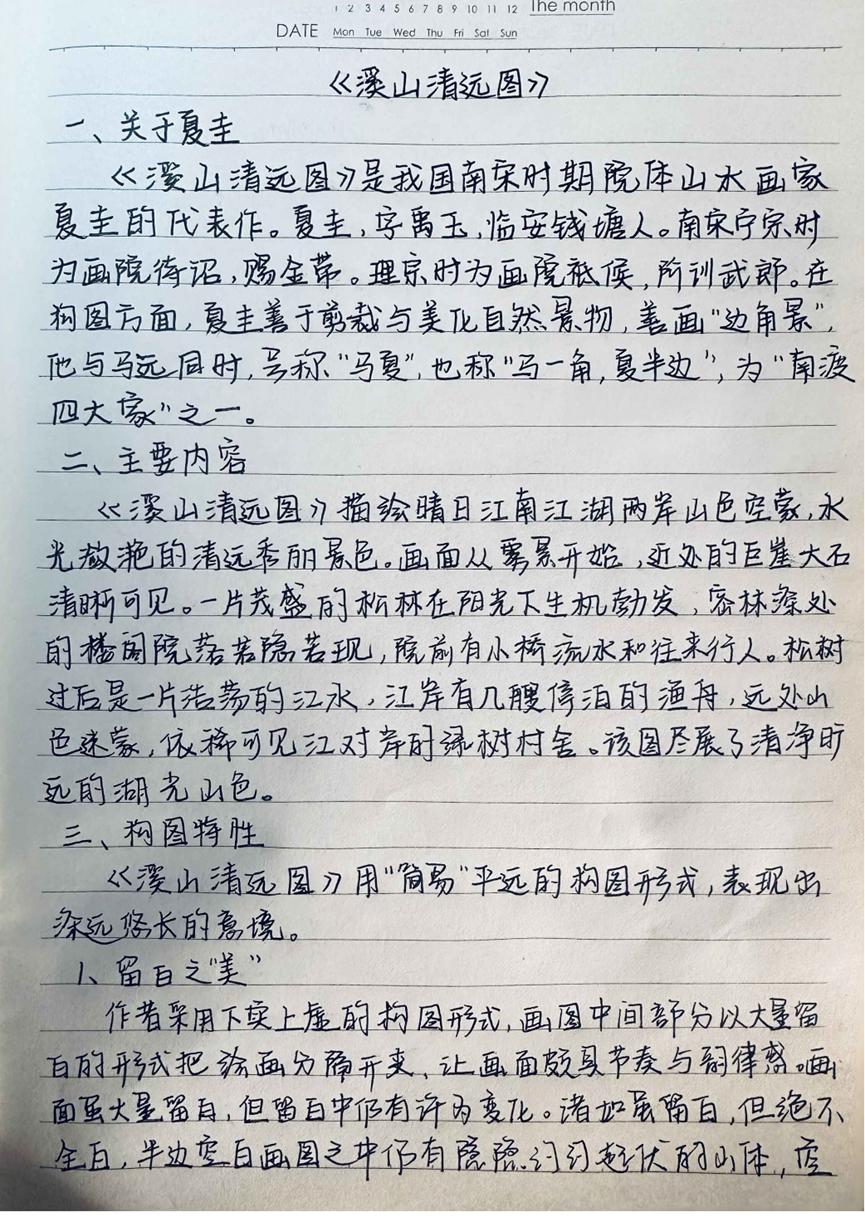 1 2 3 4 5 6 7 8 9 10 11 12 The month
DATE Mon Tue Wed Thu Fri Sat Sun
《溪山清远图》
一、关于夏圭
《溪山清远图》是我国南宋时期院体山水画家
夏圭的代表作。夏圭,字禹玉,临安钱塘人。南宋宁宗时
为画院待诏,赐金带。理宗时为画院祗候,阶训武郎。在
构图方面,夏圭善于剪裁与美化自然景物,善画“边角景”,
他与马远同时,号称“马夏”,也称“马一角,夏半边”,为“南渡
四大家”之一。
二、主要内容
《溪山清远图》描绘晴日江南江湖两岸山色空蒙,水
光潋滟的清远秀丽景色。画面从雾景开始,近处的巨崖大石
清晰可见。一片茂盛的松林在阳光下生机勃发,密林深处
的楼阁院落若隐若现,院前有小桥流水和往来行人。松树
过后是一片浩荡的江水,江岸有几艘停泊的渔舟,远处山
色迷蒙,依稀可见江对岸的绿树村舍。该图尽展了清净旷
远的湖光山色。
三、构图特性
《溪山清远图》用“简易”平远的构图形式,表现出
深远悠长的意境。
1、留白之“美”
作者采用下实上虚的构图形式,画图中间部分以大量留
白的形式把绘画分隔开来,让画面颇具节奏与韵律感。画
面虽大量留白,但留白中仍有许多变化。诸如虽留白,但绝不
全白,半边空白画图之中仍有隐隐约约起伏的山体,空